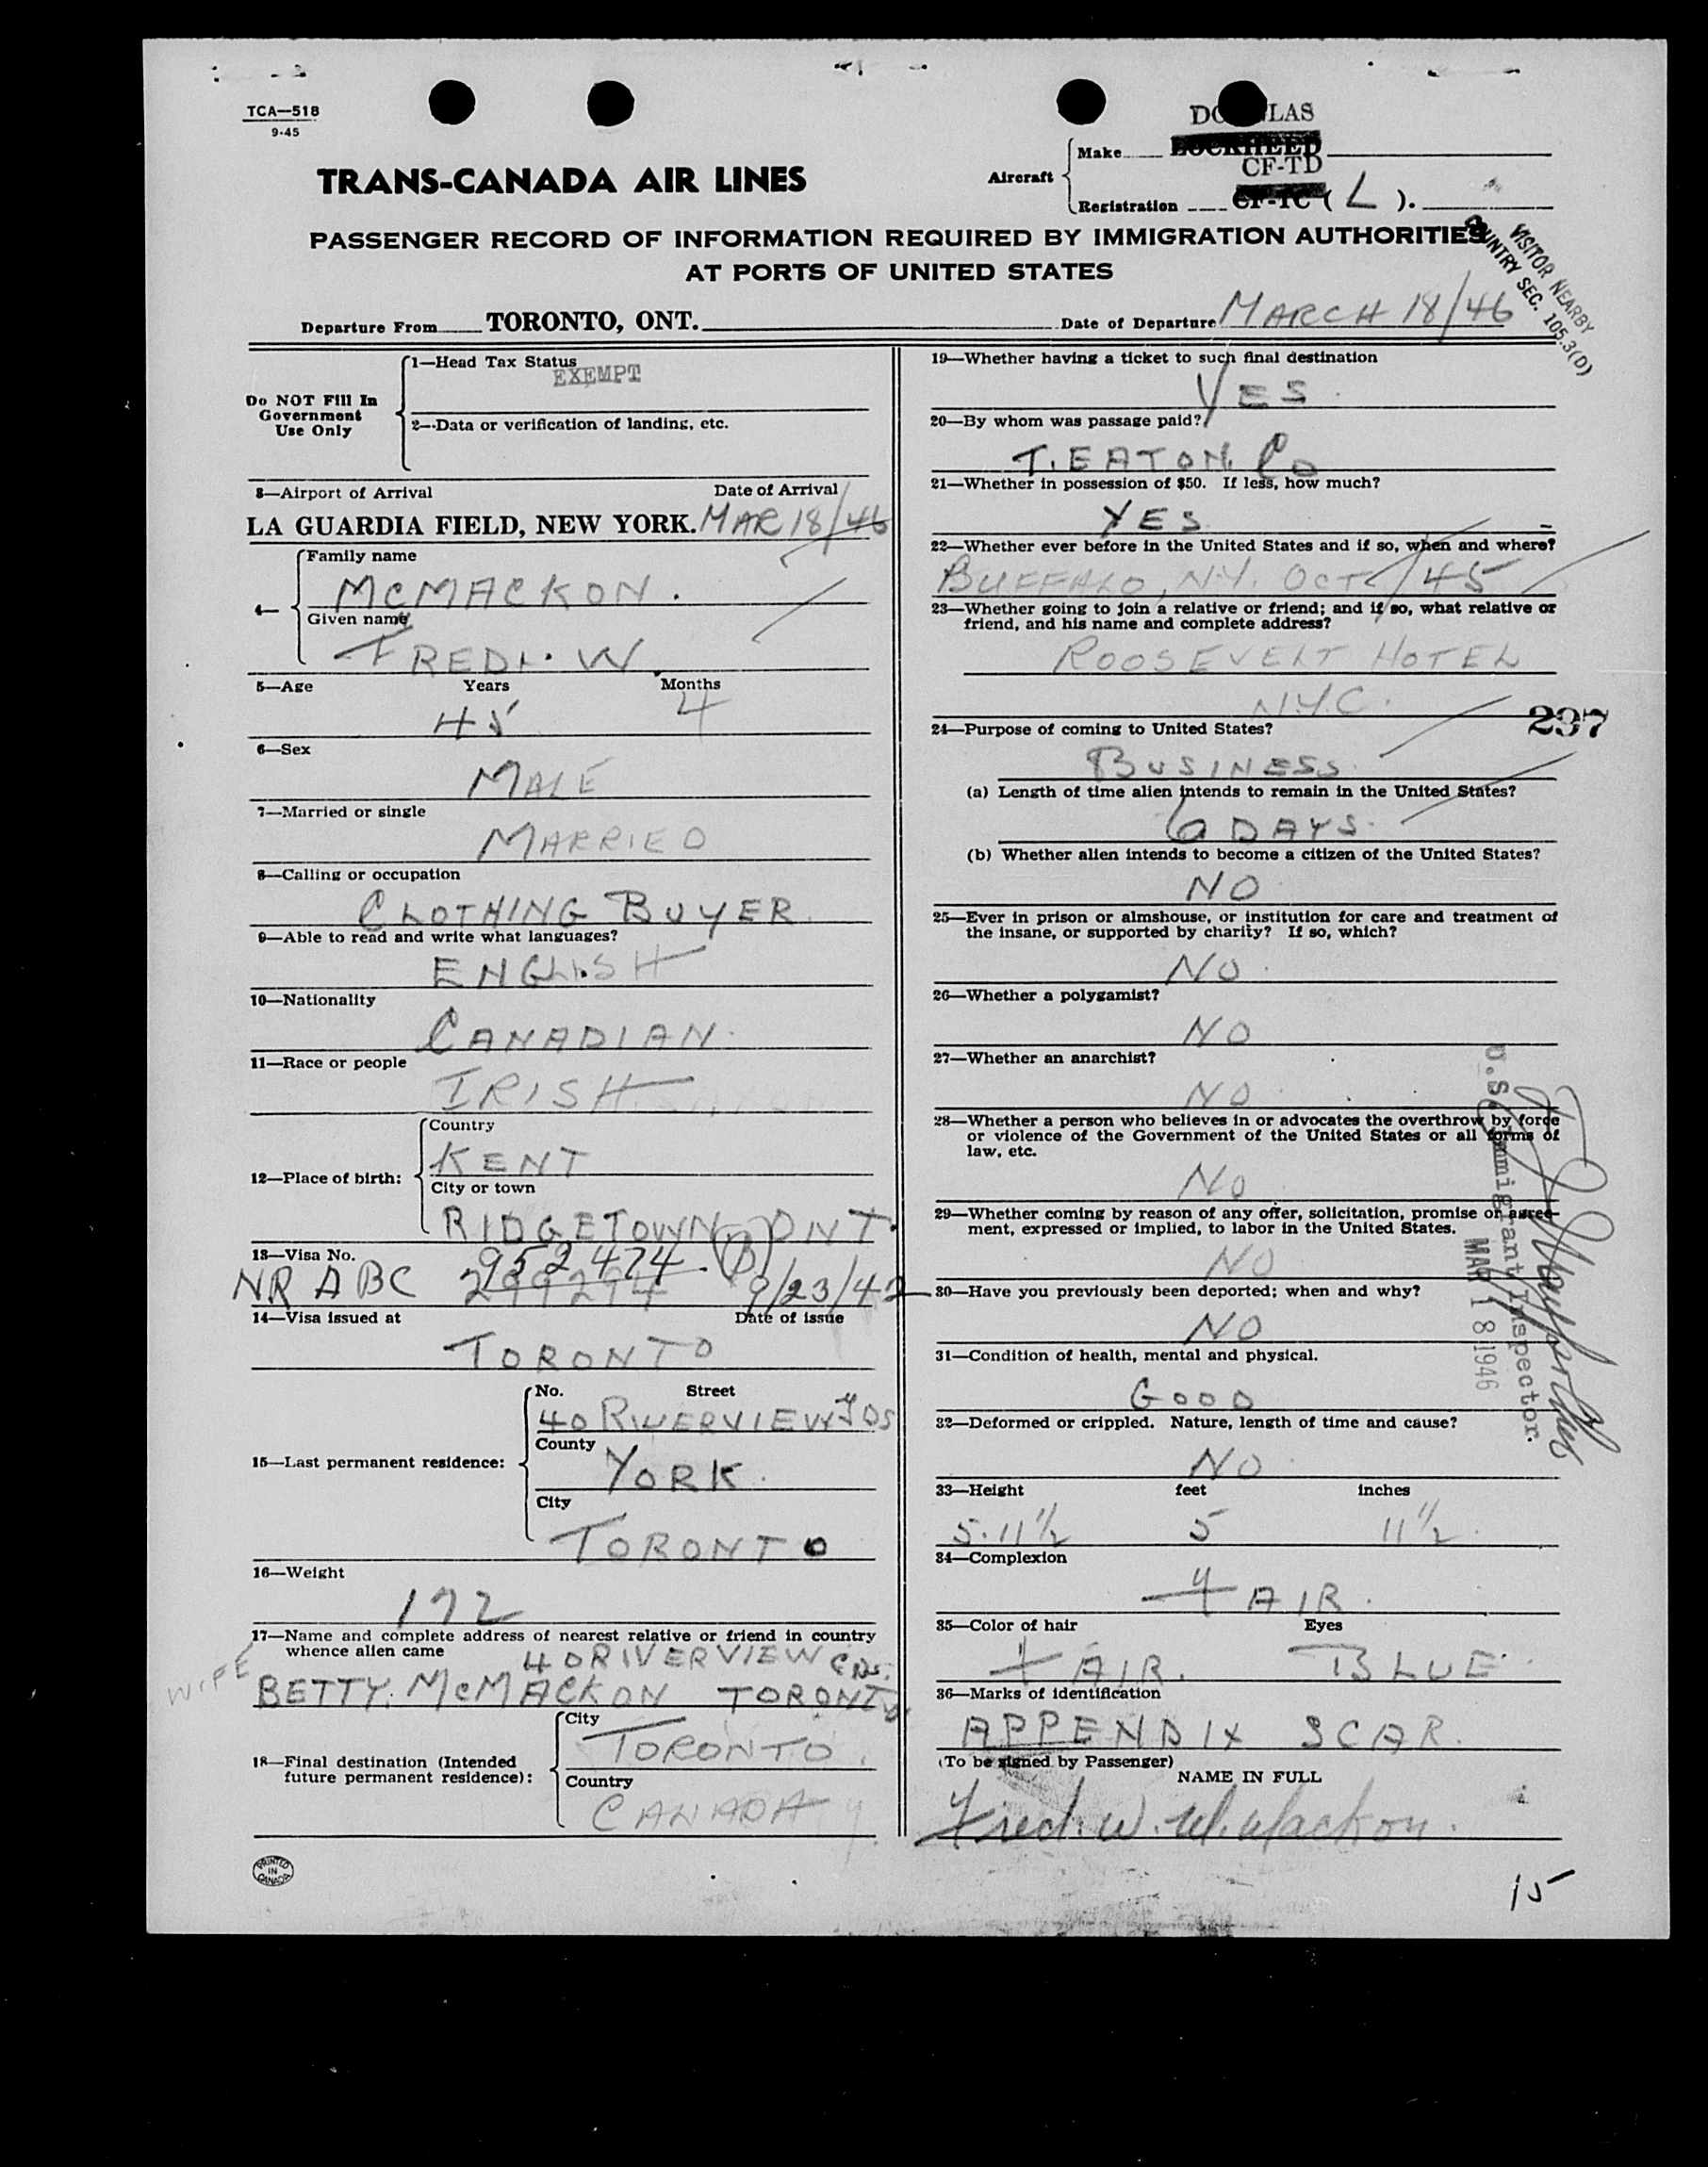 TCA—518
9-45
DOUGLAS
Make LOCKHEED
CF-TD
Aircraft
Registration CF-TC ( L ).
TRANS-CANADA AIR LINES
PASSENGER RECORD OF INFORMATION REQUIRED BY IMMIGRATION AUTHORITIES
AT PORTS OF UNITED STATES
VISITOR NEARBY
COUNTRY SEC. 105.3(D)
Departure From TORONTO, ONT. Date of Departure MARCH 18/46
Do NOT Fill In
Government
Use Only
1—Head Tax Status
EXEMPT
2—Data or verification of landing, etc.
3—Airport of Arrival Date of Arrival
LA GUARDIA FIELD, NEW YORK. MAR 18/46
4— Family name
MCMACKON.
Given name
FRED. W.
5—Age Years Months
45 4
6—Sex
MALE
7—Married or single
MARRIED
8—Calling or occupation
CLOTHING BUYER
9—Able to read and write what languages?
ENGLISH
10—Nationality
CANADIAN
11—Race or people
IRISH
12—Place of birth:
Country
KENT
City or town
RIDGETOWN, ONT.
13—Visa No.
952474 (B)
NR ABC 299294 9/23/42
14—Visa issued at Date of issue
TORONTO
15—Last permanent residence:
No. Street
40 RIVERVIEW GDS
County
YORK.
City
TORONTO
16—Weight
172
17—Name and complete address of nearest relative or friend in country
whence alien came
40 RIVERVIEW GDS.
WIFE BETTY. MCMACKON TORONTO.
18—Final destination (Intended
future permanent residence):
City
TORONTO.
Country
CANADA
PRINTED
IN
CANADA
19—Whether having a ticket to such final destination
YES
20—By whom was passage paid?
T. EATON Co
21—Whether in possession of $50. If less, how much?
YES
22—Whether ever before in the United States and if so, when and where?
BUFFALO, N.Y. OCT/45
23—Whether going to join a relative or friend; and if so, what relative or
friend, and his name and complete address?
ROOSEVELT HOTEL
N.Y.C.
297
24—Purpose of coming to United States?
BUSINESS
(a) Length of time alien intends to remain in the United States?
6 DAYS.
(b) Whether alien intends to become a citizen of the United States?
NO
25—Ever in prison or almshouse, or institution for care and treatment of
the insane, or supported by charity? If so, which?
NO.
26—Whether a polygamist?
NO
27—Whether an anarchist?
NO
28—Whether a person who believes in or advocates the overthrow by force
or violence of the Government of the United States or all forms of
law, etc.
NO
29—Whether coming by reason of any offer, solicitation, promise or agree-
ment, expressed or implied, to labor in the United States.
NO
30—Have you previously been deported; when and why?
NO
31—Condition of health, mental and physical.
GOOD
32—Deformed or crippled. Nature, length of time and cause?
NO
33—Height feet inches
5.11 1/2 5 11 1/2
34—Complexion
FAIR.
35—Color of hair Eyes
FAIR. BLUE
36—Marks of identification
APPENDIX SCAR.
(To be signed by Passenger)
NAME IN FULL
Fred. W. McMackon.
U.S. Immigrant Inspector.
MAR 18 1946
15